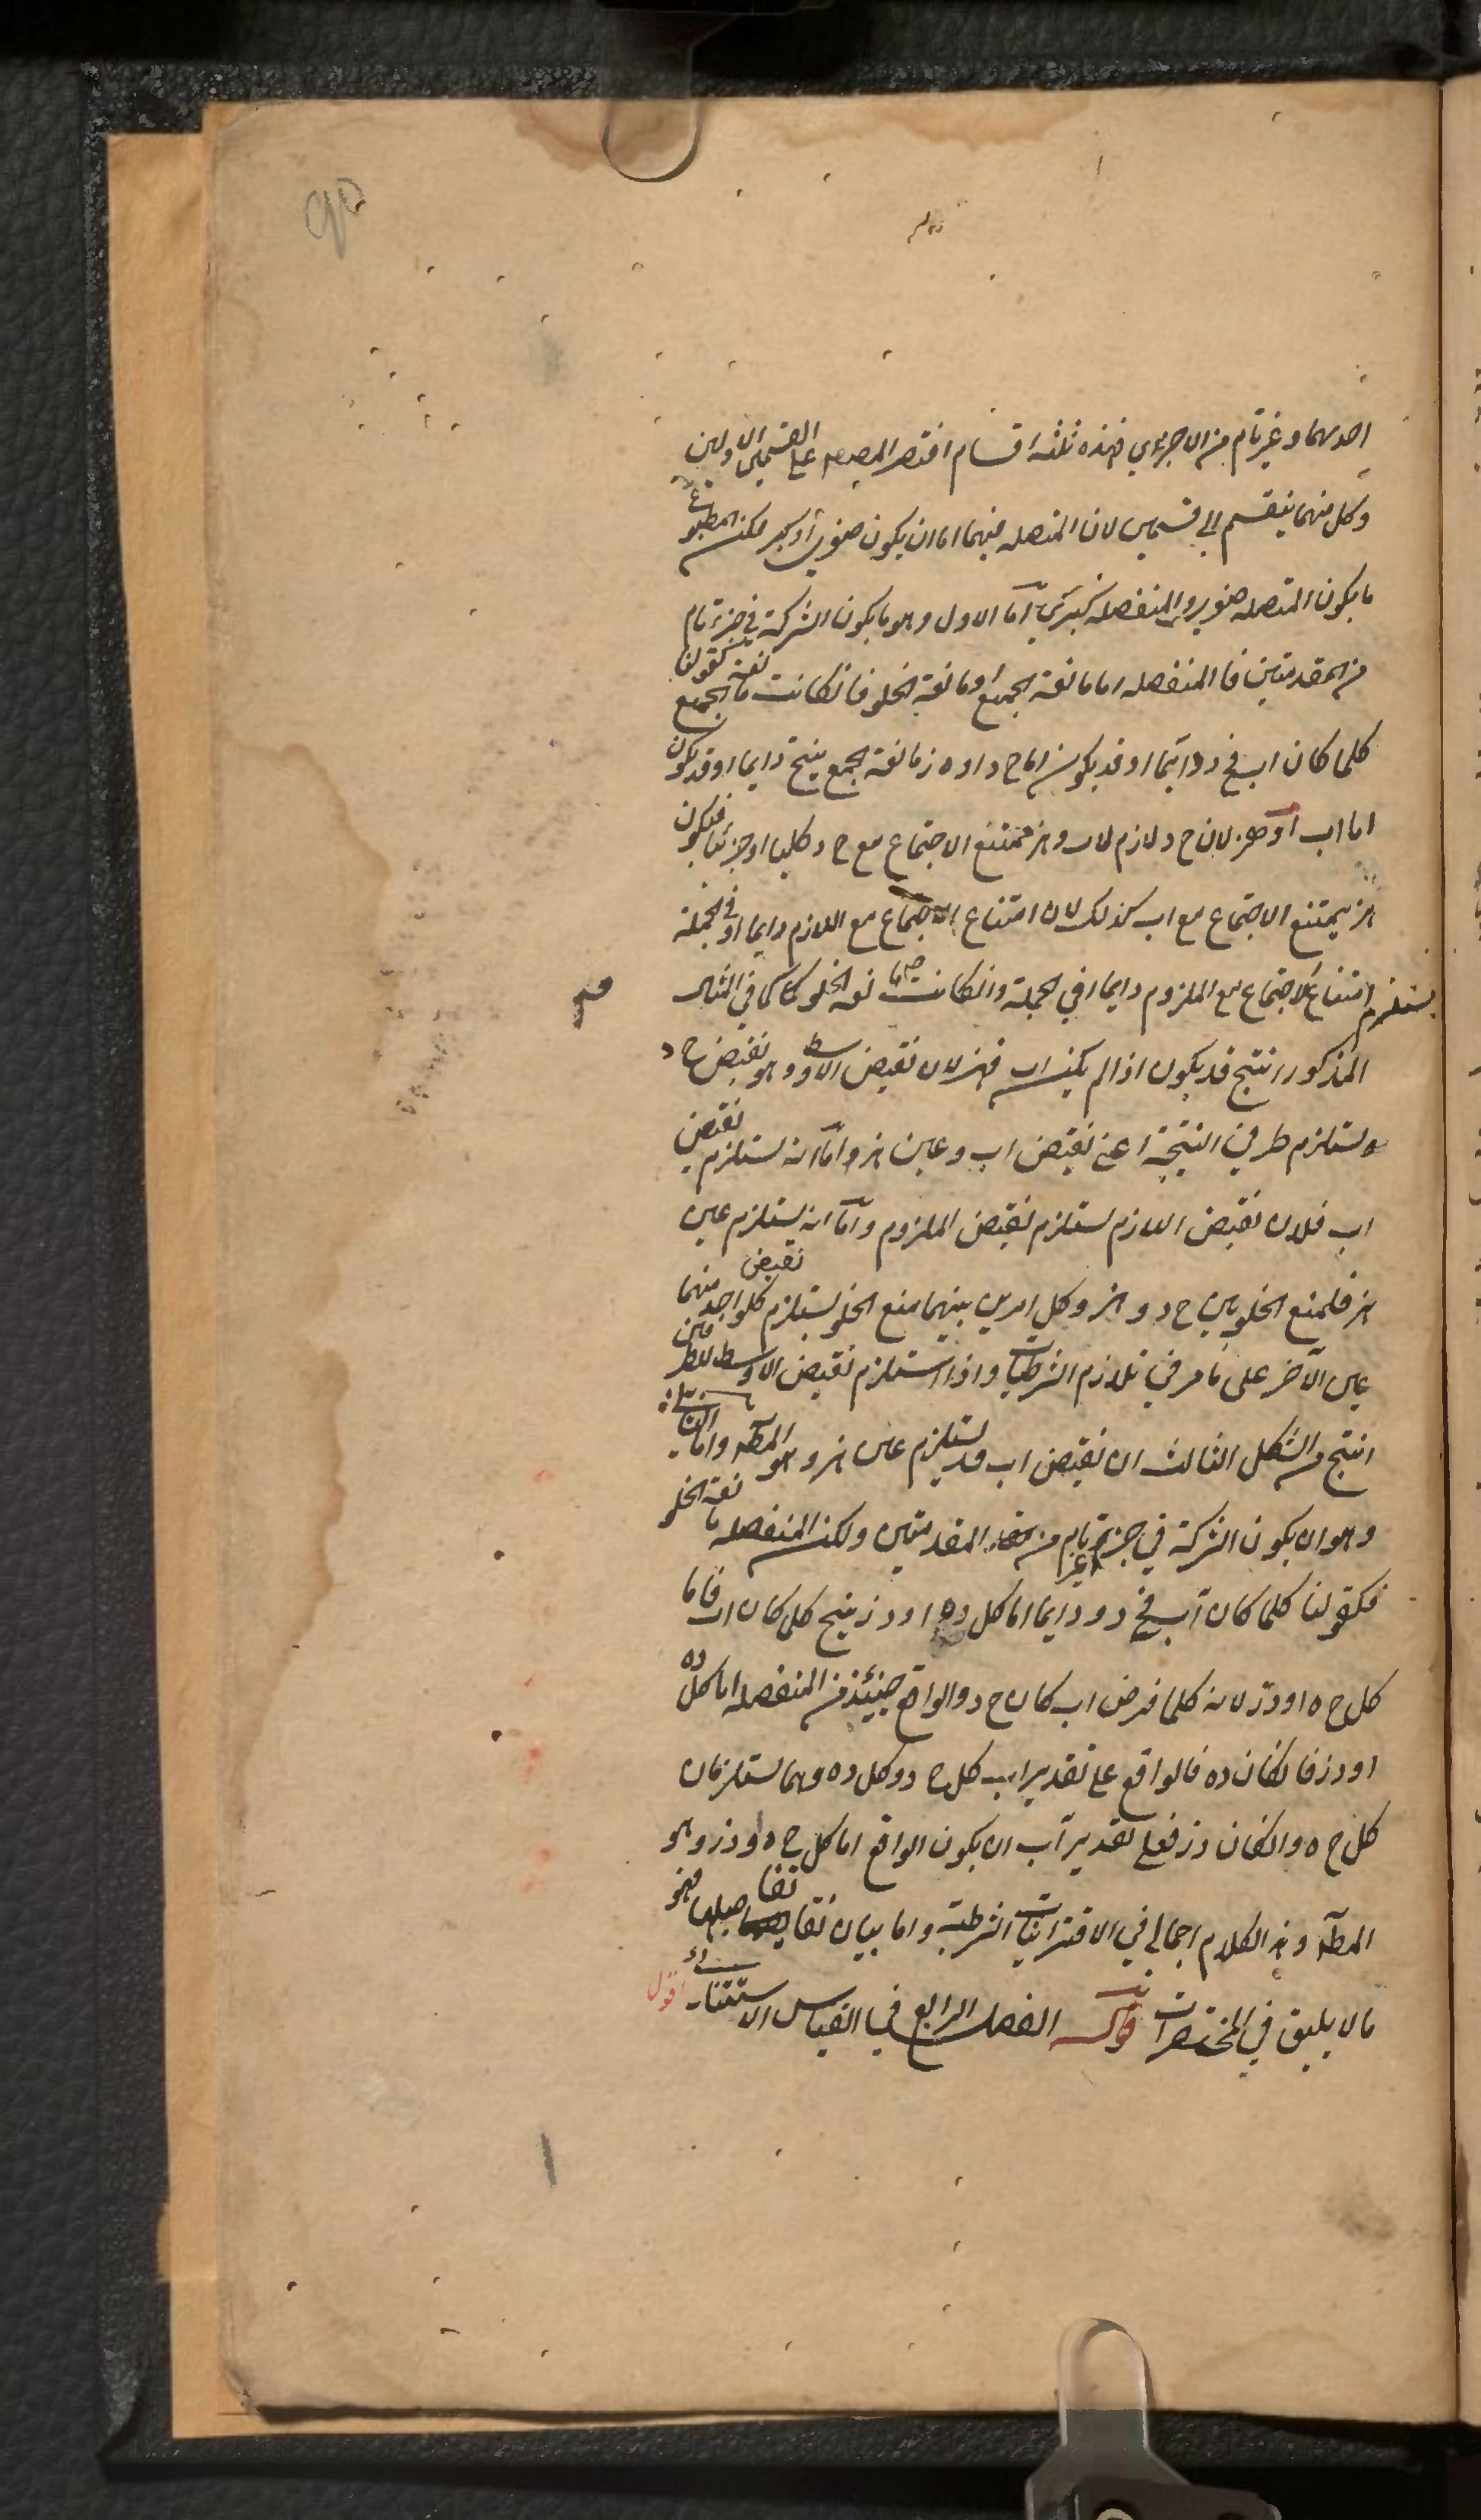 احدىهما وغير تام من الاخرى فهذه ثلثه اقسام اقتصر المص على القسمين الاولين
وكل منهما ينقسم الى قسمين لان المتصله فيهما اما ان يكون صغرى او كبرى لكن المطبوع
ما يكون المتصله صغرى والمنفصله كبرى اما الاول وهو ما يكون الشركة في جزء تام
من المقدمتين فالمنفصله اما مانعة الجمع او مانعة الخلو فانكانت مانعة الجمع كقولنا
كلما كان اب فج د دايما او قد يكون اما ج د او ه ز مانعة الجمع ينتج دايما او قد يكون
اما اب او ه ز لان ج د لازم لاب و ه ز ممتنع الاجتماع مع ج د كليا او جزئيا فيكون
ه ز يمتنع الاجتماع مع اب كذلك لان امتناع الاجتماع مع اللازم دايما او في الجملة
يستلزم امتناع الاجتماع مع الملزوم دايما او في الجملة وانكانت مانعة الخلو كما في المثال
المذكور انتج قد يكون اذا لم يكن اب فه ز لان نقيض الاوسط وهو نقيض ج د
يستلزم طرفي النتيجة اعني نقيض اب وعين ه ز واما انه يستلزم نقيض
اب فلان نقيض اللازم يستلزم نقيض الملزوم واما انه يستلزم عين
ه ز فلمنع الخلو بين ج د و ه ز وكل امرين بينهما منع الخلو يستلزم نقيض كل واحد منهما
عين الآخر على ما مر في تلازم الشرطيات واذا استلزم نقيض الاوسط للطرفين
انتج من الشكل الثالث ان نقيض اب قد يستلزم عين ه ز وهو المط واما الثاني
وهو ان يكون الشركة في جزء غير تام من المقدمتين ولكن المنفصله مانعة الخلو
فكقولنا كلما كان اب فج د و دايما اما كل د ه او د ز ينتج كلما كان اب فاما
كل ج ه او د ز لانه كلما فرض اب كان ج د والواقع حينئذ من المنفصله اما كل د ه
او د ز فان كان د ه فالواقع على تقدير اب كل ج د وكل د ه وهما يستلزمان
كل ج ه وان كان د ز فعلى تقدير اب ان يكون الواقع اما كل ج ه او د ز وهو
المط وهذا الكلام اجمالي في الاقترانيات الشرطية واما بيان تفاصيلها فهو
ما لا يليق في المختصرات قوله الفصل الرابع في القياس الاستثنائي اقول